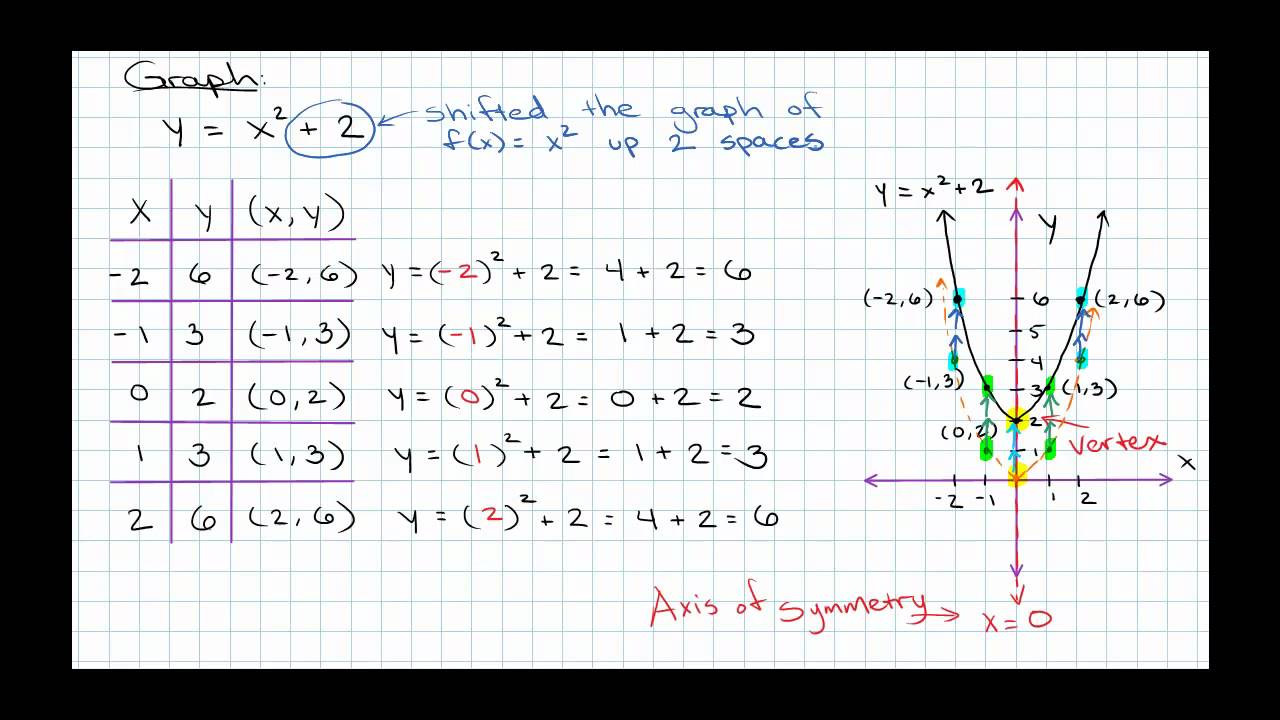 Graph:
y = x² + 2
shifted the graph of
f(x) = x² up 2 spaces
x y (x, y)
-2 6 (-2, 6) y = (-2)² + 2 = 4 + 2 = 6
-1 3 (-1, 3) y = (-1)² + 2 = 1 + 2 = 3
0 2 (0, 2) y = (0)² + 2 = 0 + 2 = 2
1 3 (1, 3) y = (1)² + 2 = 1 + 2 = 3
2 6 (2, 6) y = (2)² + 2 = 4 + 2 = 6
y = x² + 2
y
(-2, 6) 6 (2, 6)
5
4
(-1, 3) 3 (1, 3)
(0, 2) 2
vertex
1
x
-2 -1 1 2
Axis of symmetry
x = 0